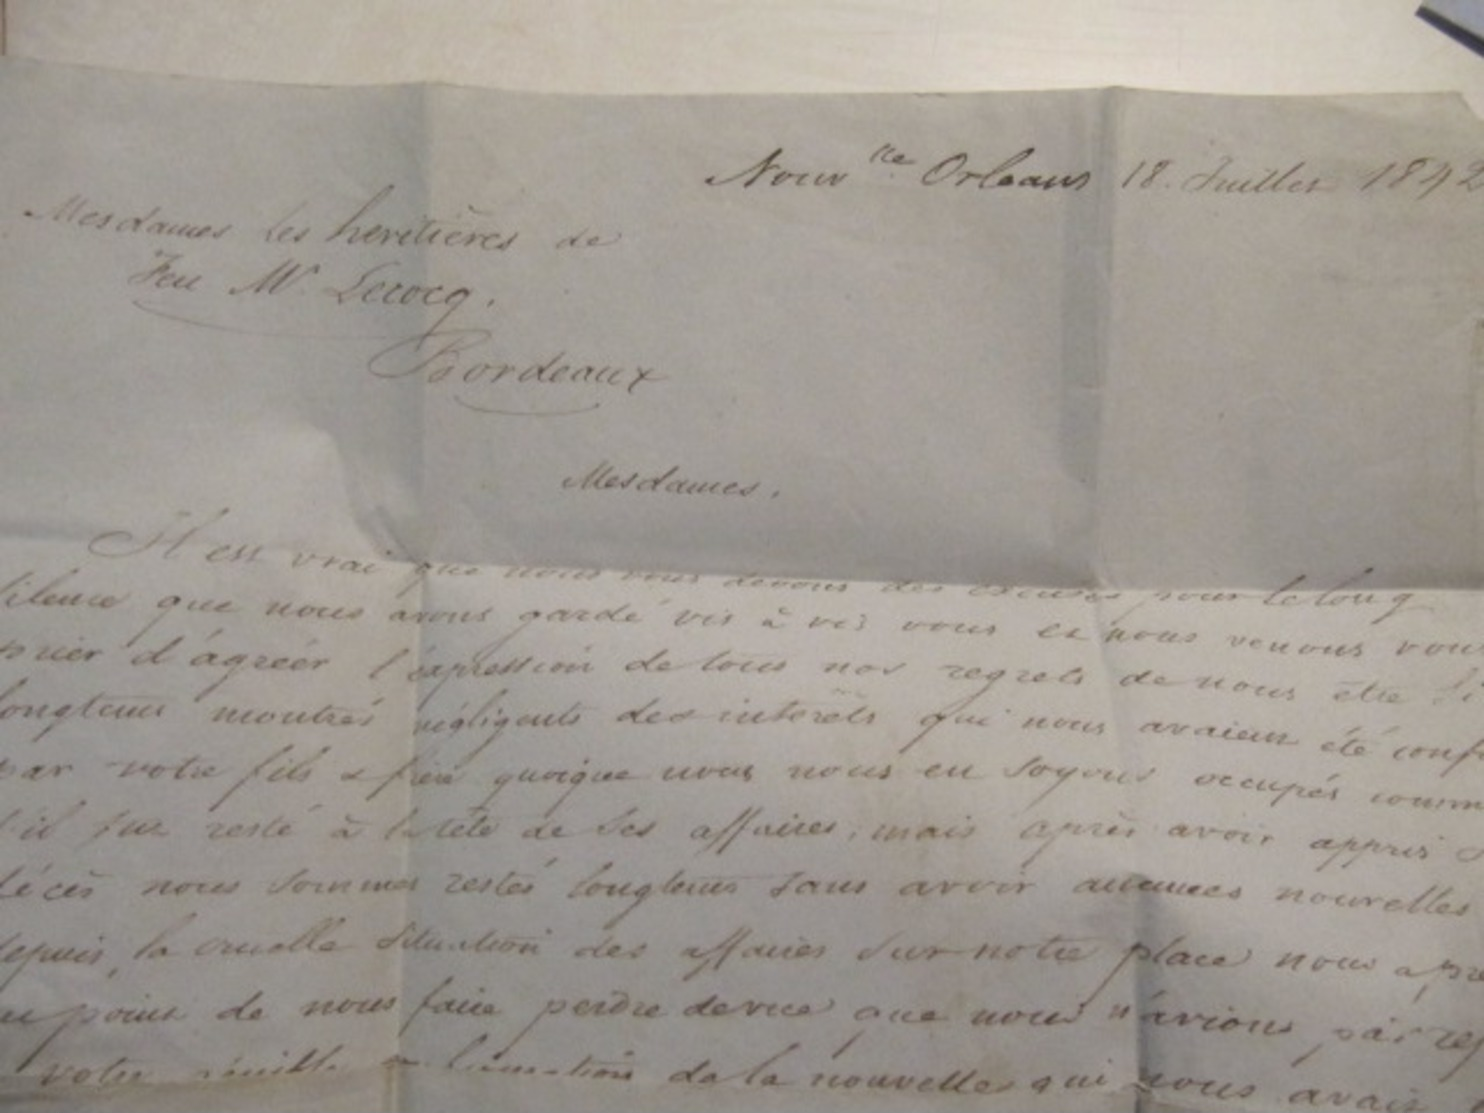 Nouv.lle Orleans 18. Juillet 1842
Mesdames les heritières de
Feu Mr. Lecocq.
Bordeaux
Mesdames.
Il est vrai que nous vous devons des excuses pour le long
silence que nous avons gardé vis à vis vous et nous venons vous
prier d'agréer l'expression de tous nos regrets de nous être si
longtems montrés négligents des interêts qui nous avaient été conf
par votre fils & frère quoique nous nous en soyons occupés comm
s'il fut resté à la tête de ses affaires, mais après avoir appris
décès nous sommes restés longtems sans avoir aucunes nouvelles
depuis, la cruelle situation des affaires sur notre place nous a
au point de nous faire perdre de vue que nous n'avions pas
votre de la nouvelle qui nous avait